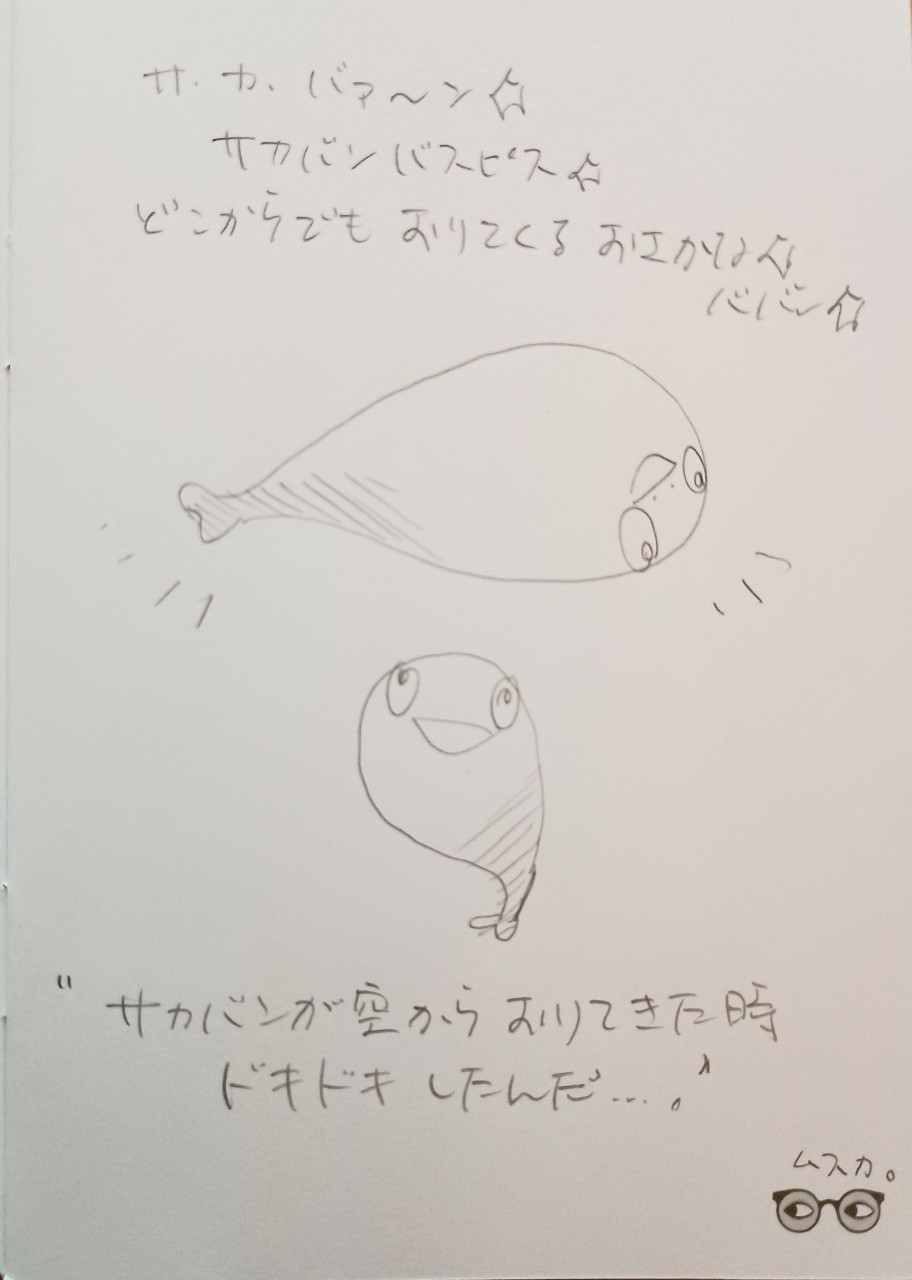 サ・カ・バァ～ン☆
サカバンバスピス☆
どこからでも おりてくる おさかな☆
ババン☆
"サカバンが空から おりてきた時
ドキドキ したんだ…。"
ムスカ。